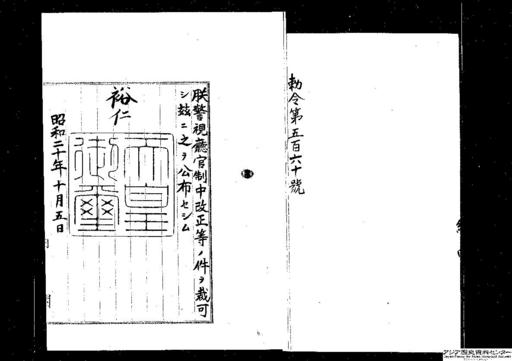 勅令第五百六十號
朕警視廳官制中改正等ノ件ヲ裁可
シ玆ニ之ヲ公布セシム
裕仁
天皇
御璽
昭和二十年十月五日
アジア歴史資料センター